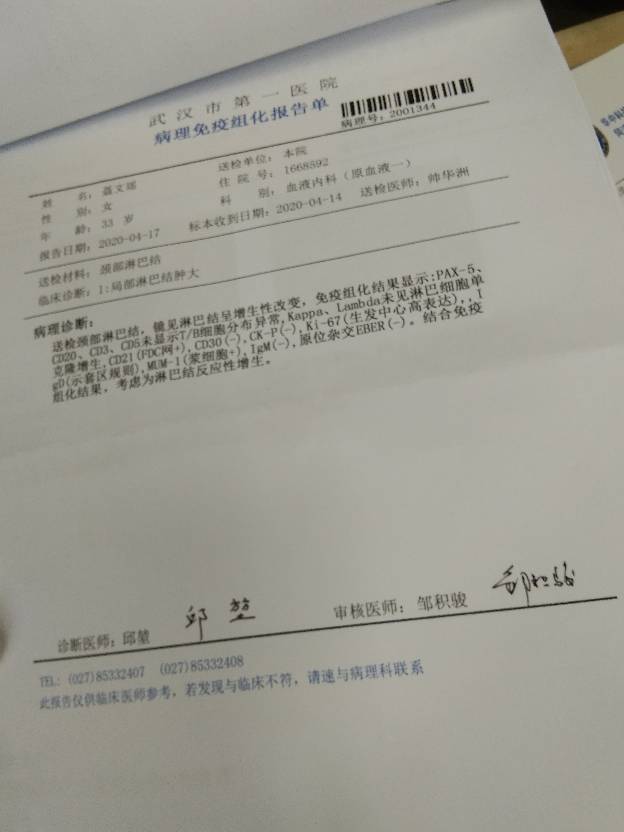 武汉市第一医院
病理免疫组化报告单
病理号：2001344
姓 名：聂文瑶 送检单位：本院
性 别：女 住 院 号：1668592
年 龄：33 岁 科 别：血液内科（原血液一）
报告日期：2020-04-17 标本收到日期：2020-04-14 送检医师：帅华洲
送检材料：颈部淋巴结
临床诊断：1:局部淋巴结肿大
病理诊断：
送检颈部淋巴结，镜见淋巴结呈增生性改变，免疫组化结果显示:PAX-5、
CD20、CD3、CD5未显示T/B细胞分布异常,Kappa、Lambda未见淋巴细胞单
克隆增生,CD21(FDC网+),CD30(-),CK-P(-),Ki-67(生发中心高表达),,I
gD(示套区规则),MUM-1(浆细胞+),IgM(-),原位杂交EBER(-)。结合免疫
组化结果，考虑为淋巴结反应性增生。
诊断医师：邱堃 邱堃 审核医师：邹积骏 邹积骏
TEL: (027)85332407 (027)85332408
此报告仅供临床医师参考，若发现与临床不符，请速与病理科联系